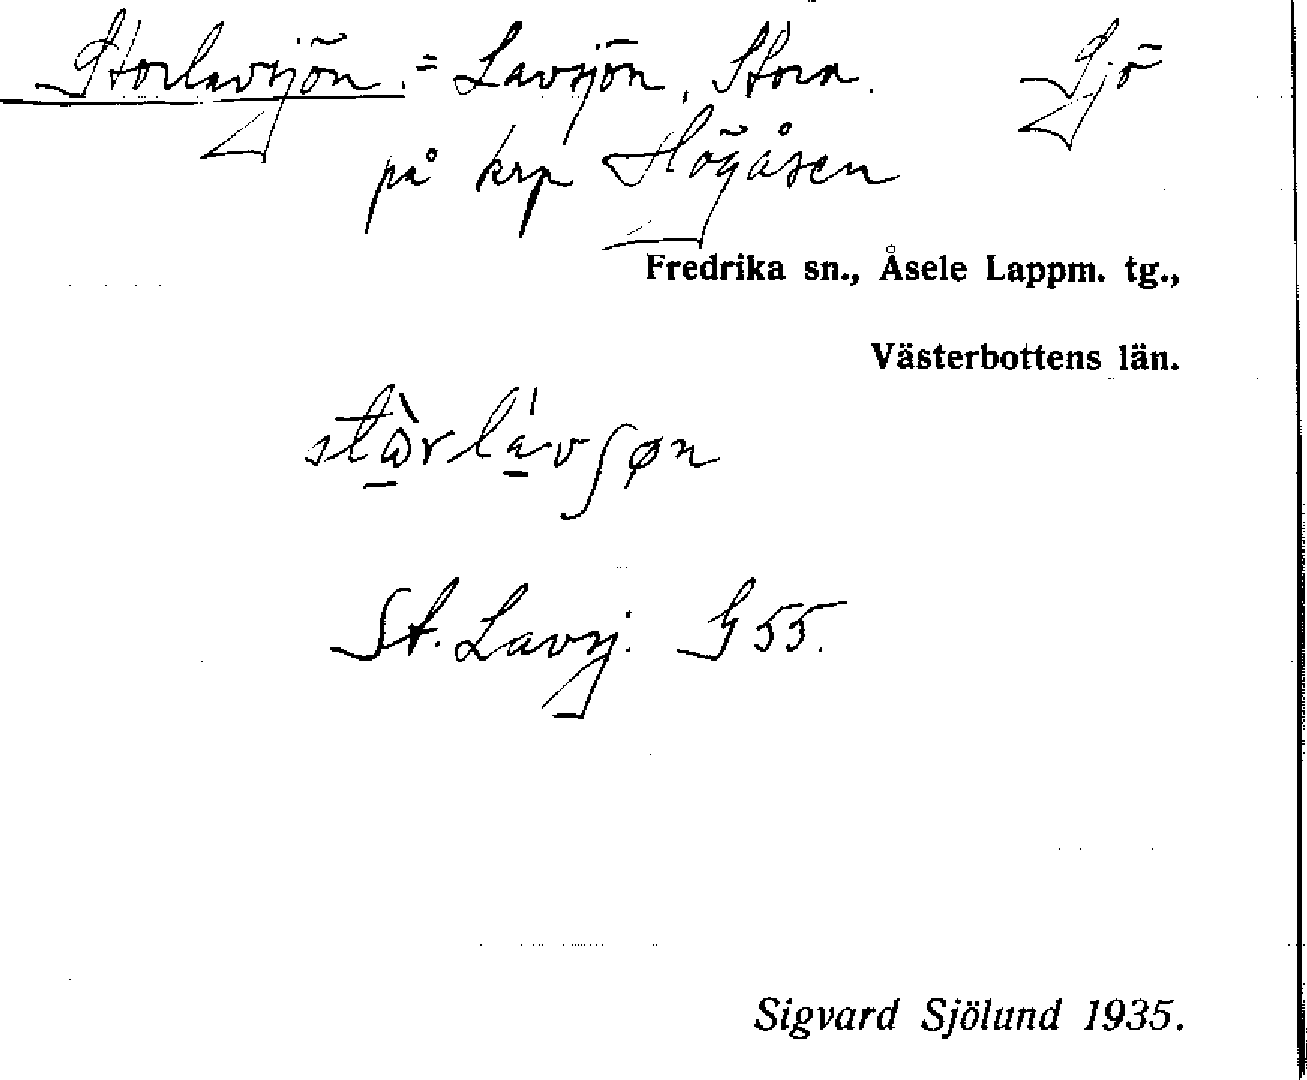 Storlavsjön. = Lavsjön, Stora. Sjö
på krp Högåsen
Fredrika sn., Åsele Lappm. tg.,
Västerbottens län.
St. Lavsj. G 55.
Sigvard Sjölund 1935.